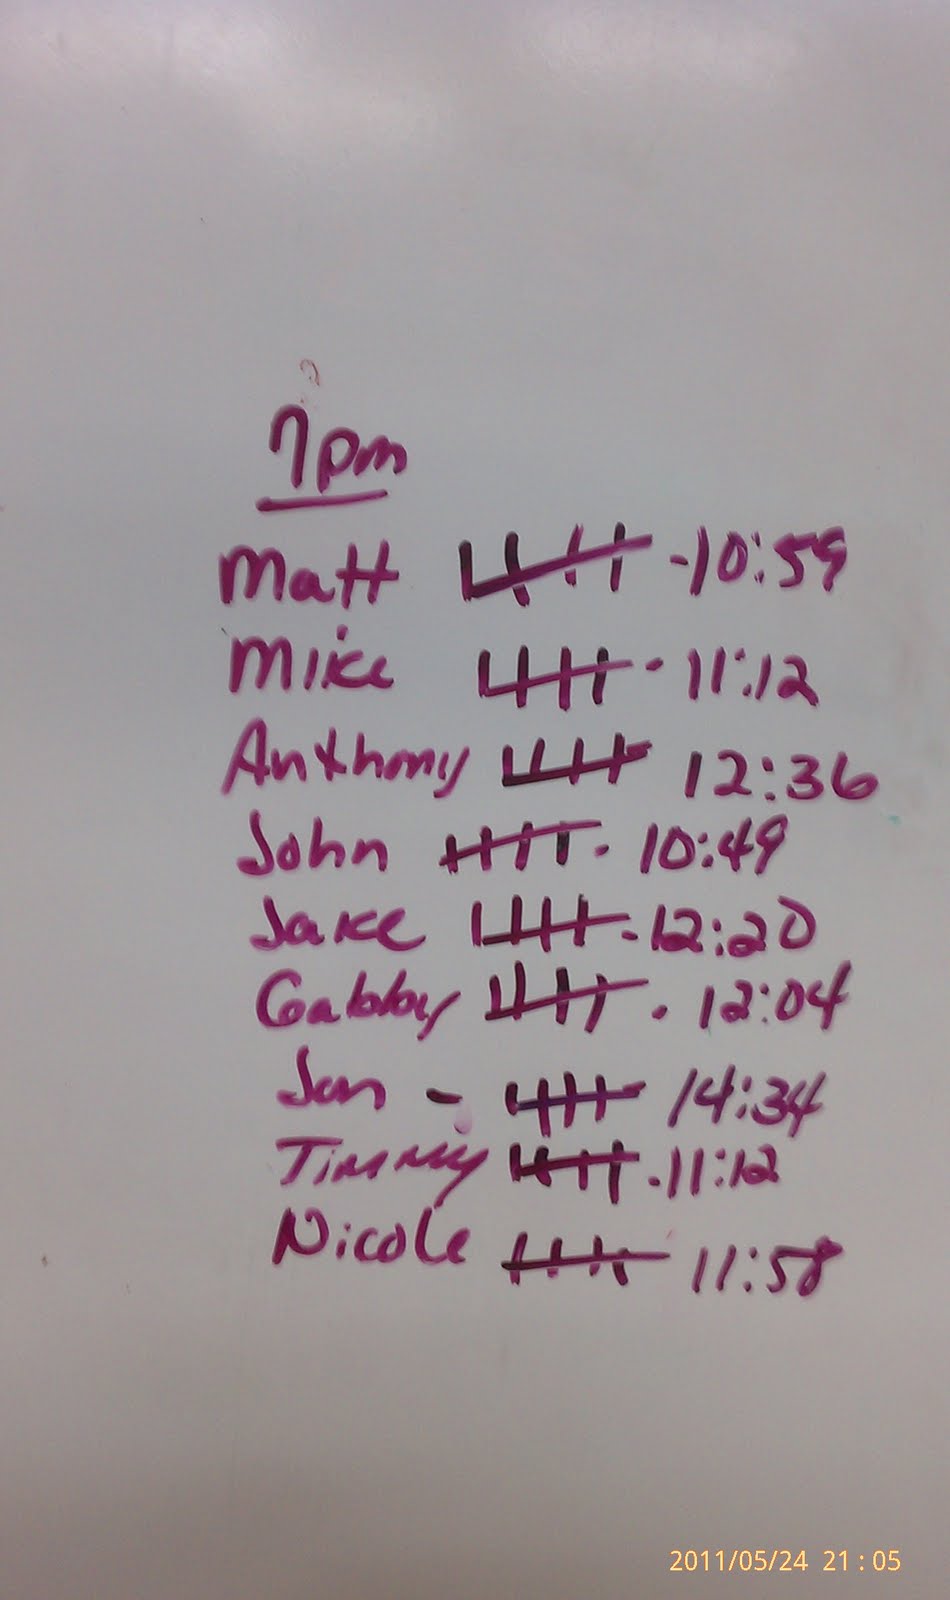 7pm
Matt 卌 - 10:59
Mike 卌 - 11:12
Anthony 卌 12:36
John 卌 . 10:49
Jake 卌 - 12:20
Gabby 卌 . 12:04
Jon - 卌 14:34
Timmy 卌 . 11:12
Nicole 卌 11:58
2011/05/24 21:05